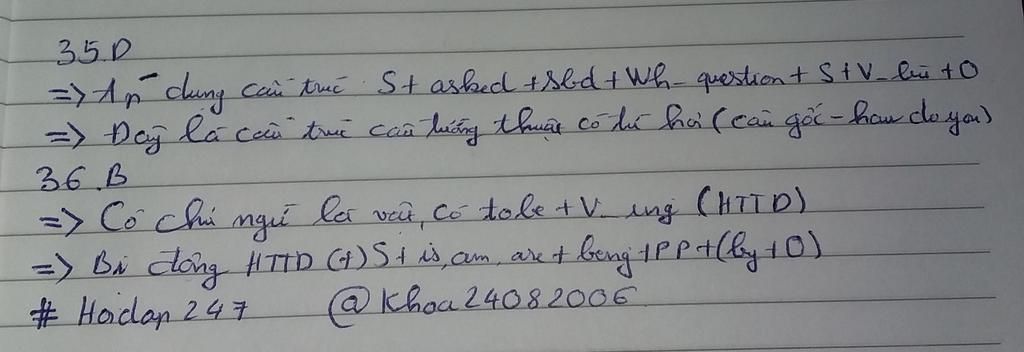 35.D
=> Áp dụng cấu trúc S + asked + sbd + Wh-question + S + V-lùi + O
=> Đây là cấu trúc câu tường thuật có từ hỏi (câu gốc - how do you)
36.B
=> Có chủ ngữ là vật, có tobe + V_ing (HTTD)
=> Bị động HTTD (+) S + is, am, are + being + PP + (by + O)
# Hoidap247 @Khoa24082006